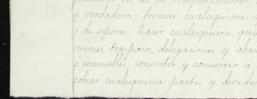 y verdadero; formar cualesquiera
o de esperas, hacer cualesquiera qui
ciones, traspasos, delegaciones y aban
e inmuebles; consentir y concurrir a
cobrar cualesquiera partes y dividen